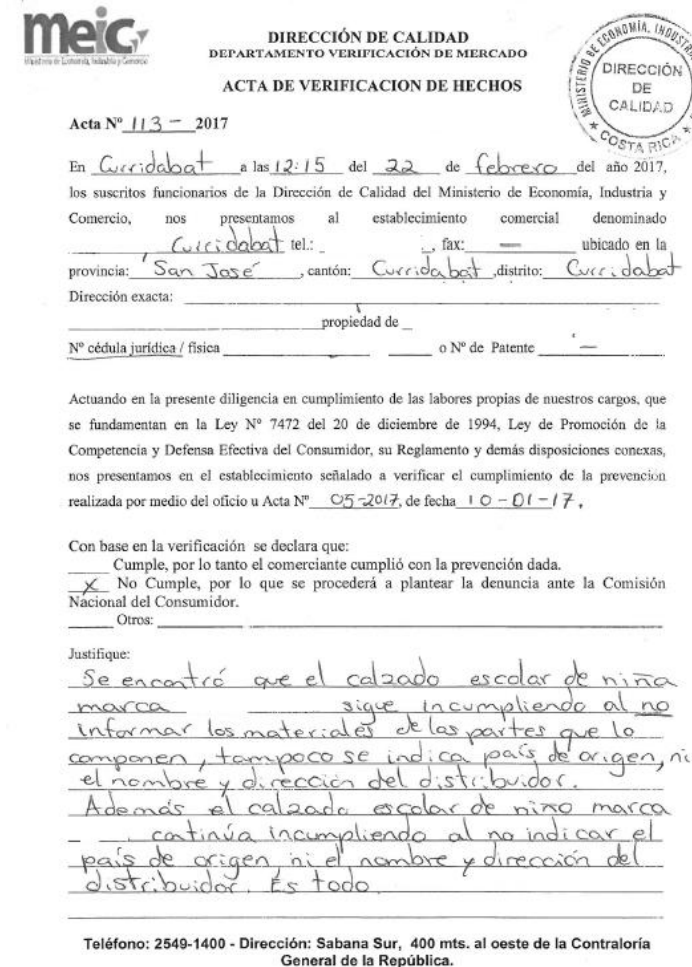 meic
Ministerio de Economía, Industria y Comercio
DIRECCIÓN DE CALIDAD
DEPARTAMENTO VERIFICACIÓN DE MERCADO
ACTA DE VERIFICACION DE HECHOS
MINISTERIO DE ECONOMÍA, INDUSTRIA
DIRECCIÓN
DE
CALIDAD
COSTA RICA
Acta Nº 113 - 2017
En Curridabat a las 12:15 del 22 de febrero del año 2017,
los suscritos funcionarios de la Dirección de Calidad del Ministerio de Economía, Industria y
Comercio, nos presentamos al establecimiento comercial denominado
Curridabat tel.: , fax: — ubicado en la
provincia: San José, cantón: Curridabat, distrito: Curridabat
Dirección exacta:
propiedad de
Nº cédula jurídica / física o Nº de Patente —
Actuando en la presente diligencia en cumplimiento de las labores propias de nuestros cargos, que
se fundamentan en la Ley Nº 7472 del 20 de diciembre de 1994, Ley de Promoción de la
Competencia y Defensa Efectiva del Consumidor, su Reglamento y demás disposiciones conexas,
nos presentamos en el establecimiento señalado a verificar el cumplimiento de la prevención
realizada por medio del oficio u Acta Nº 05-2017, de fecha 10-01-17.
Con base en la verificación se declara que:
Cumple, por lo tanto el comerciante cumplió con la prevención dada.
X No Cumple, por lo que se procederá a plantear la denuncia ante la Comisión
Nacional del Consumidor.
Otros:
Justifique:
Se encontró que el calzado escolar de niña
marca sigue incumpliendo al no
informar los materiales de las partes que lo
componen, tampoco se indica país de origen, ni
el nombre y dirección del distribuidor.
Además el calzado escolar de niño marca
continúa incumpliendo al no indicar el
país de origen ni el nombre y dirección del
distribuidor. Es todo
Teléfono: 2549-1400 - Dirección: Sabana Sur, 400 mts. al oeste de la Contraloría
General de la República.